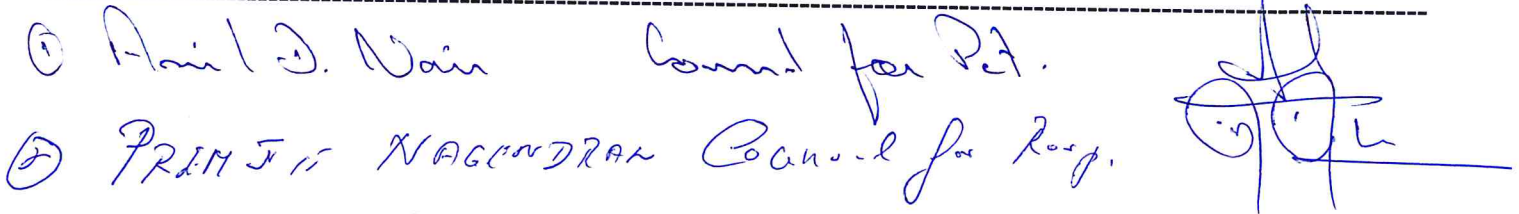 ① Anil D. Nair Counsel for Pet.
② PREMJIT NAGENDRAN Counsel for Resp.